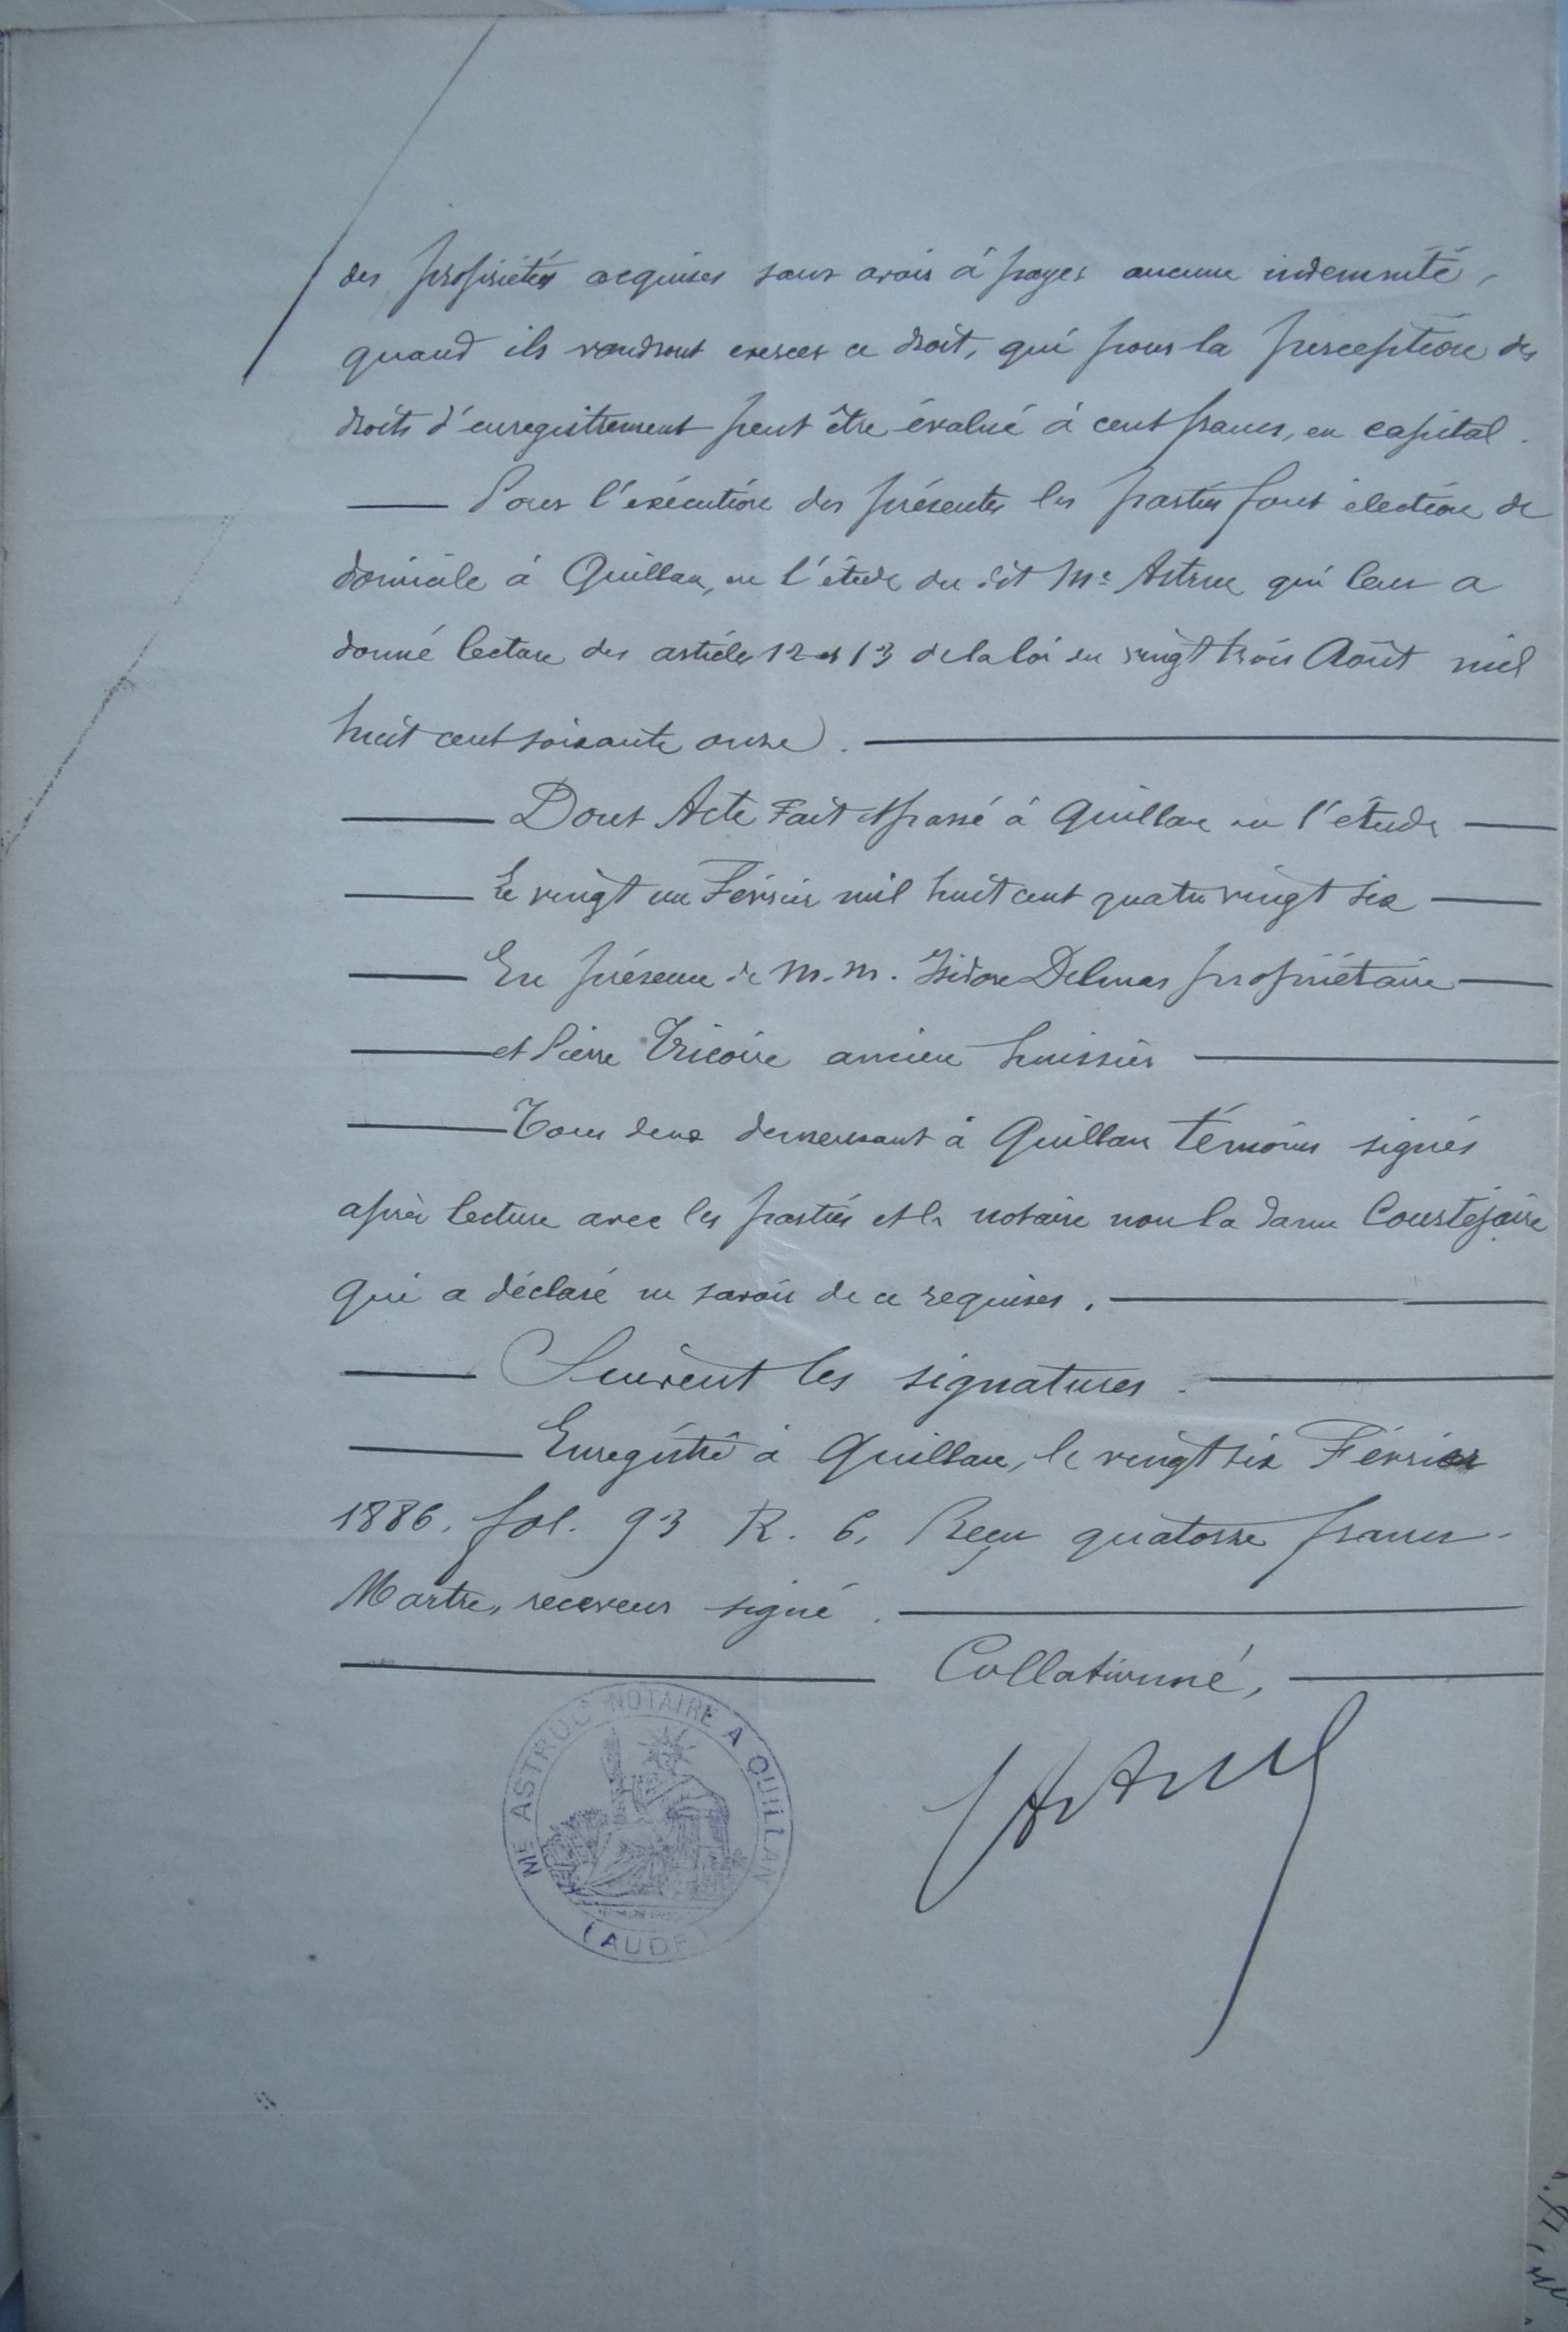 des propriétés acquises sans avoir à payer aucune indemnité,
quand ils voudront exercer ce droit, qui pour la perception des
droits d'enregistrement peut être évalué à cent francs, en capital.
Pour l'exécution des présentes les parties font élection de
domicile à Quillan, en l'étude du dit Me Astruc qui leur a
donné lecture des articles 12 et 13 de la loi du vingt trois Août mil
huit cent soixante onze.
Dont Acte Fait et passé à Quillan en l'étude
Le vingt un Février mil huit cent quatre vingt six
En présence de M.M. Isidore Delmas propriétaire
et Pierre Tricoire ancien huissier
Tous deux demeurant à Quillan témoins signés
après lecture avec les parties et le notaire non la dame Courtejaire
qui a déclaré ne savoir de ce requises.
Suivent les signatures.
Enregistré à Quillan, le vingt six Février
1886. fol. 93 R. 6. Reçu quatorze francs.
Martre, receveur signé.
Collationné,
ME ASTRUC NOTAIRE A QUILLAN
(AUDE)
Astruc